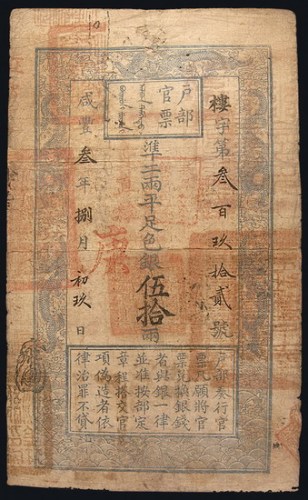 户部官票
樓字第叁百玖拾貳號
準二兩平足色銀伍拾兩
咸豐叁年捌月初玖日
户部奏行官
票凡願將官
票兌換銀錢
者與銀一律
並准按部定
章程搭交官
項偽造者依
律治罪不貸